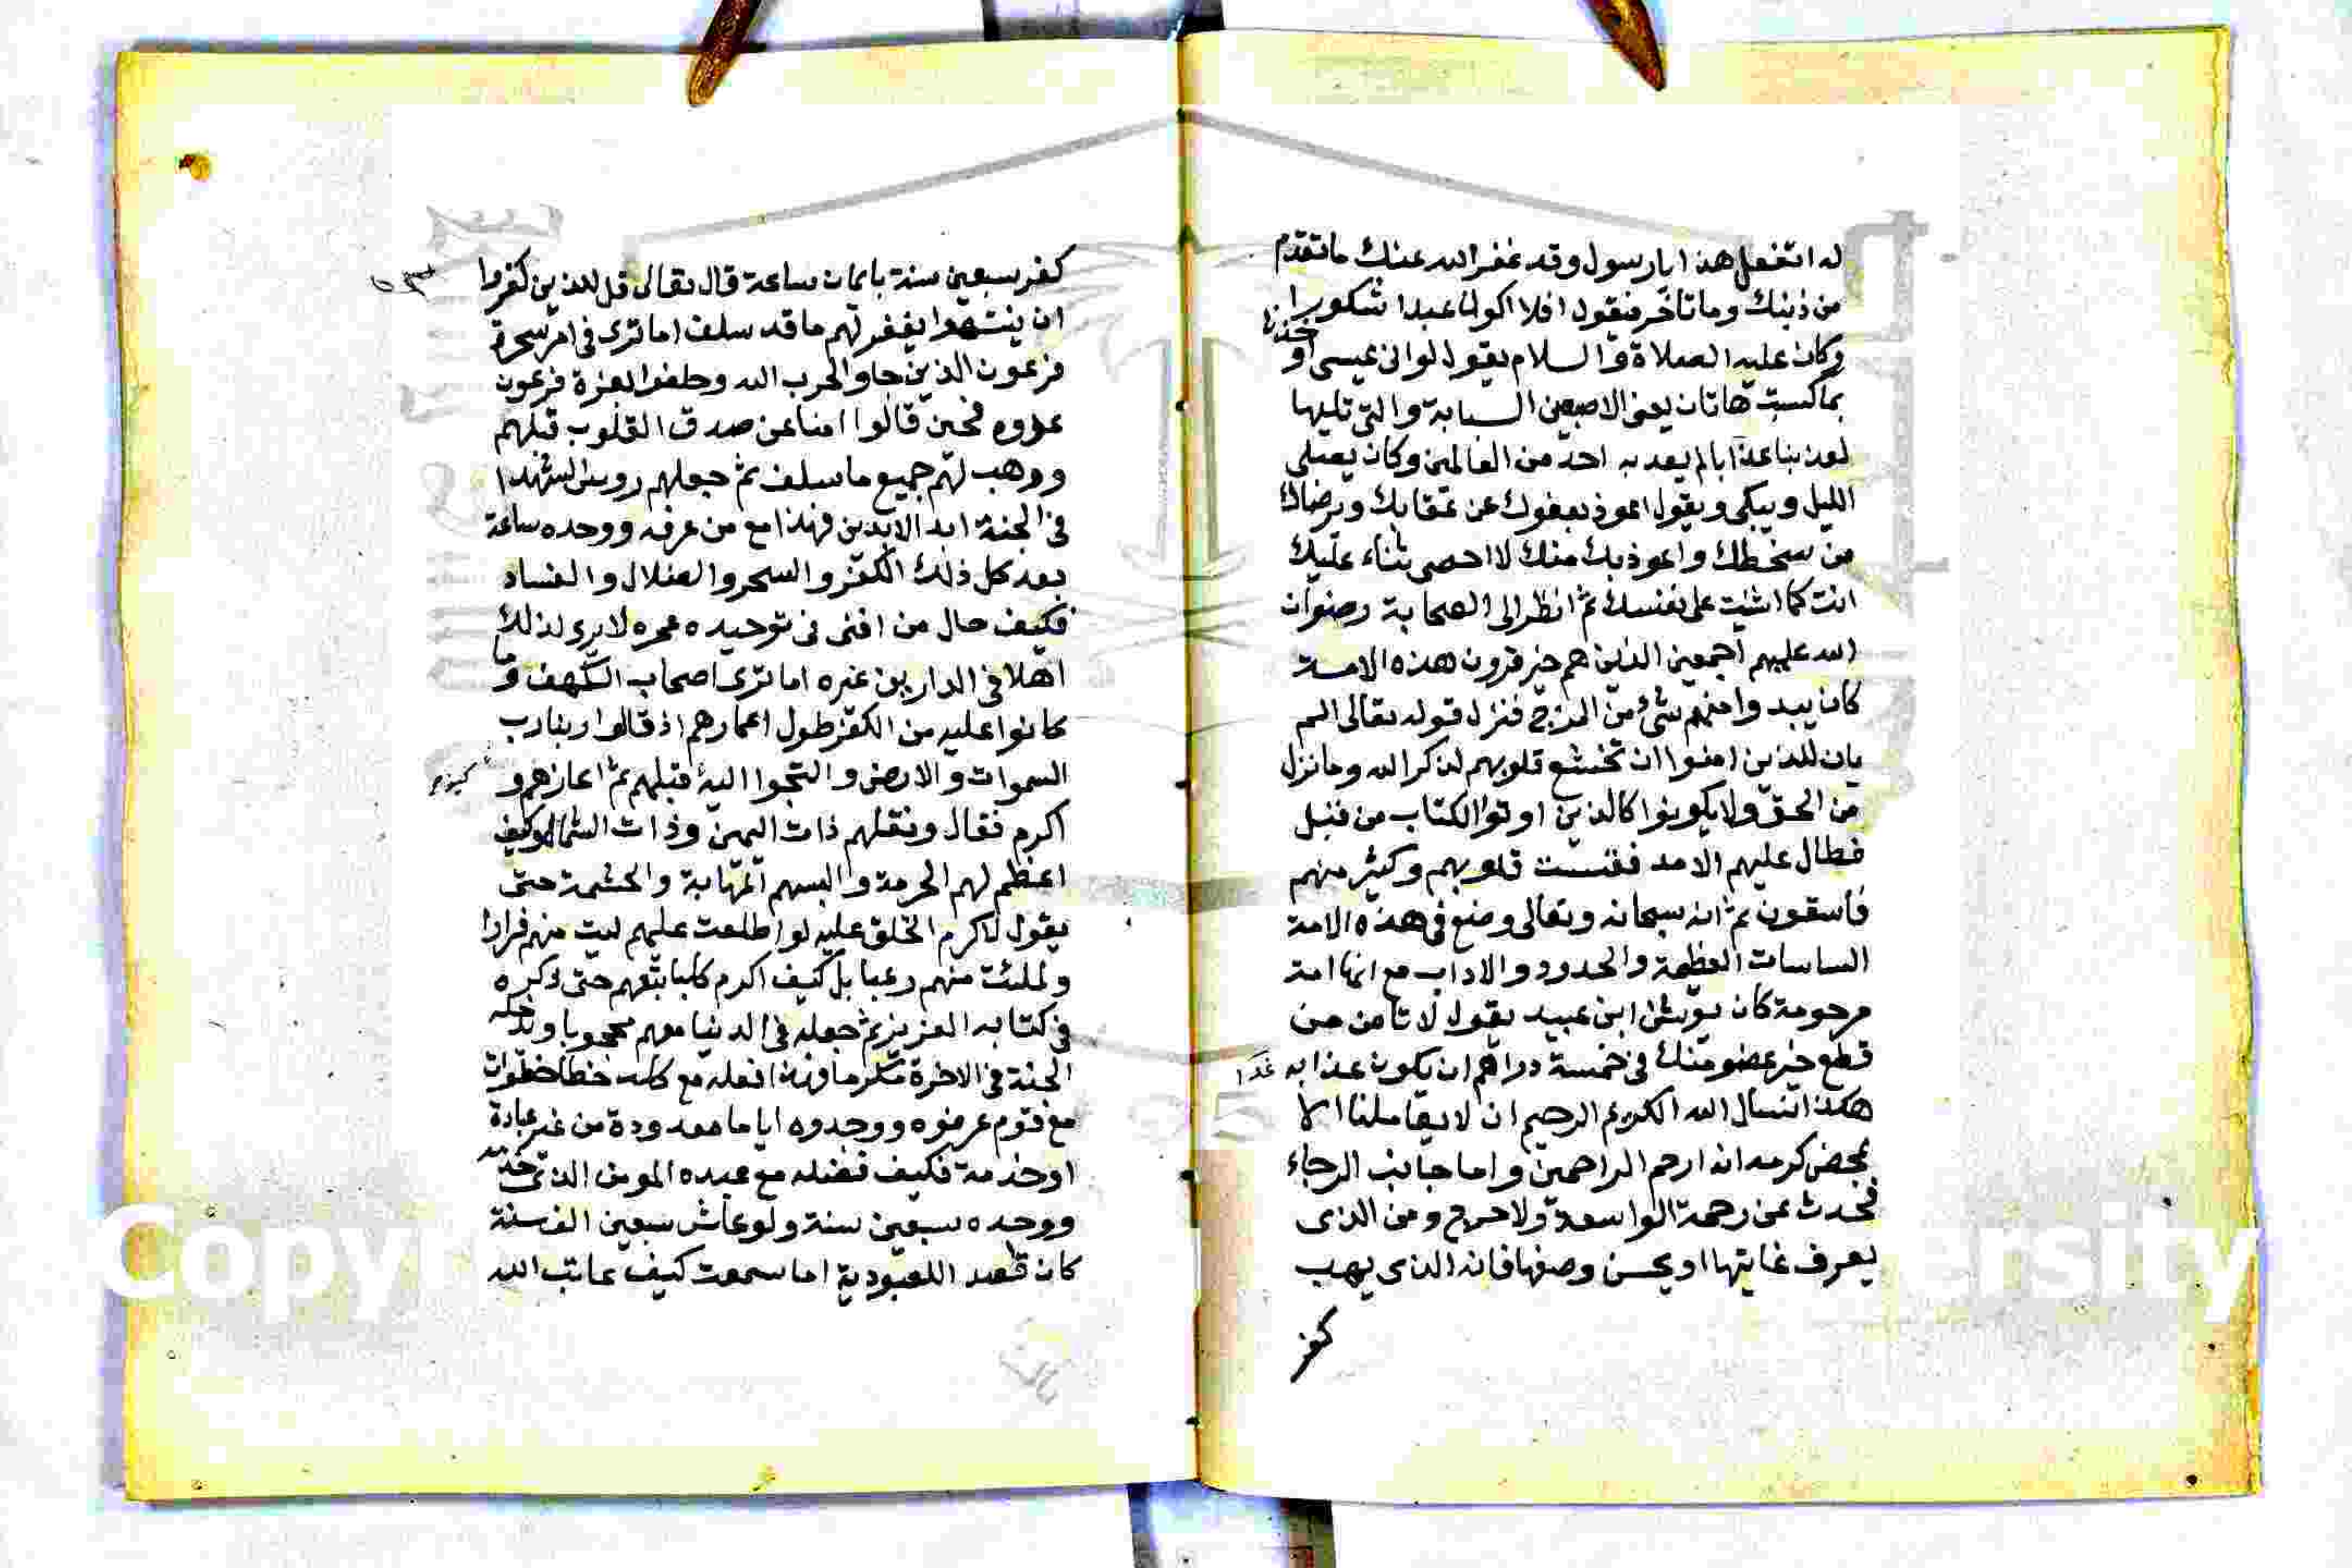 له اتفعل هذا يارسول وقد غفر الله عنك ما تقدم
من ذنبك وما تاخر فيقول افلا اكون عبدا شكورا
وكان عليه الصلاة والسلام يقول لو انى وعيسى اوخذنا
بما كسبت هاتان يعنى الاصبعين السبابة والتى تليها
لعذبنا عذابا لم يعذب به احد من العالمين وكان يصلى
الليل ويبكى ويقول اعوذ بعفوك من عقابك وبرضاك
من سخطك واعوذ بك منك لا احصى ثناء عليك
انت كما اثنيت على نفسك ثم انظر الى الصحابة رضوان
الله عليهم اجمعين الذين هم خير قرون هذه الامة
كان يبدوا منهم شئ من المزح فنزل قوله تعالى الم
يان للذين امنوا ان تخشع قلوبهم لذكر الله وما نزل
من الحق ولا يكونوا كالذين اوتوا الكتاب من قبل
فطال عليهم الامد فقست قلوبهم وكثير منهم
فاسقون ثم انه سبحانه وتعالى وضع فى هذه الامة
الساسات العظيمة والحدود والاداب مع انها امة
مرحومة كان يونس ابن عبيد يقول لا تامن من
قطع خير عضو منك فى خمسة دراهم ان يكون عذابه غدا
هكذا نسال الله الكريم الرحيم ان لا يعاملنا الا
بمحض كرمه انه ارحم الراحمين واما جانب الرجاء
فحدث عن رحمة الواسعة ولا حرج ومن الذى
يعرف غايتها او يحسن وصفها فانه الذى يهب
كفر
كفر سبعين سنة بايمان ساعة قال تعالى قل للذين كفروا
ان ينتهوا يغفر لهم ما قد سلف اما ترى فى امر سحرة
فرعون الذين جاوا لحرب الله وحلفوا بعزة فرعون
عدوه فحين قالوا امنا عن صدق القلوب قبلهم
ووهب لهم جميع ما سلف ثم جعلهم روس الشهدا
فى الجنة ابد الابدين فهذا مع من عرفه ووحده ساعة
بعد كل ذلك الكفر والسحر والضلال والفساد
فكيف حال من افنى فى توحيده عمره لا يرى لذلك
اهلا فى الدارين غيره اما ترى اصحاب الكهف وما
كانوا عليه من الكفر طول اعمارهم اذ قالوا ربنا رب
السموات والارض والتجوا اليه فقبلهم ثم اعازهم و
اكرم فقال ونقلبهم ذات اليمين وذات الشمال وكيف
اعظم لهم الحرمة والبسهم المهابة والحشمة حتى
يقول لاكرم الخلق عليه لو اطلعت عليهم ليت منهم فرارا
ولملئت منهم رعبا بل كيف اكرم كلبا تبعهم حتى ذكره
فى كتابه العزيز ثم جعله فى الدنيا معهم محجوبا ويدخله
الجنة فى الاخرة مكرما فهذا فعله مع كلب خطا خطوات
مع قوم عرفوه ووحدوه اياما معدودة من غير عبادة
او خدمة فكيف فضله مع عبده المومن الذى خدمه
ووحده سبعين سنة ولو عاش سبعين الف سنة
كان قصد اللعبودية اما سمعت كيف عاتب الله